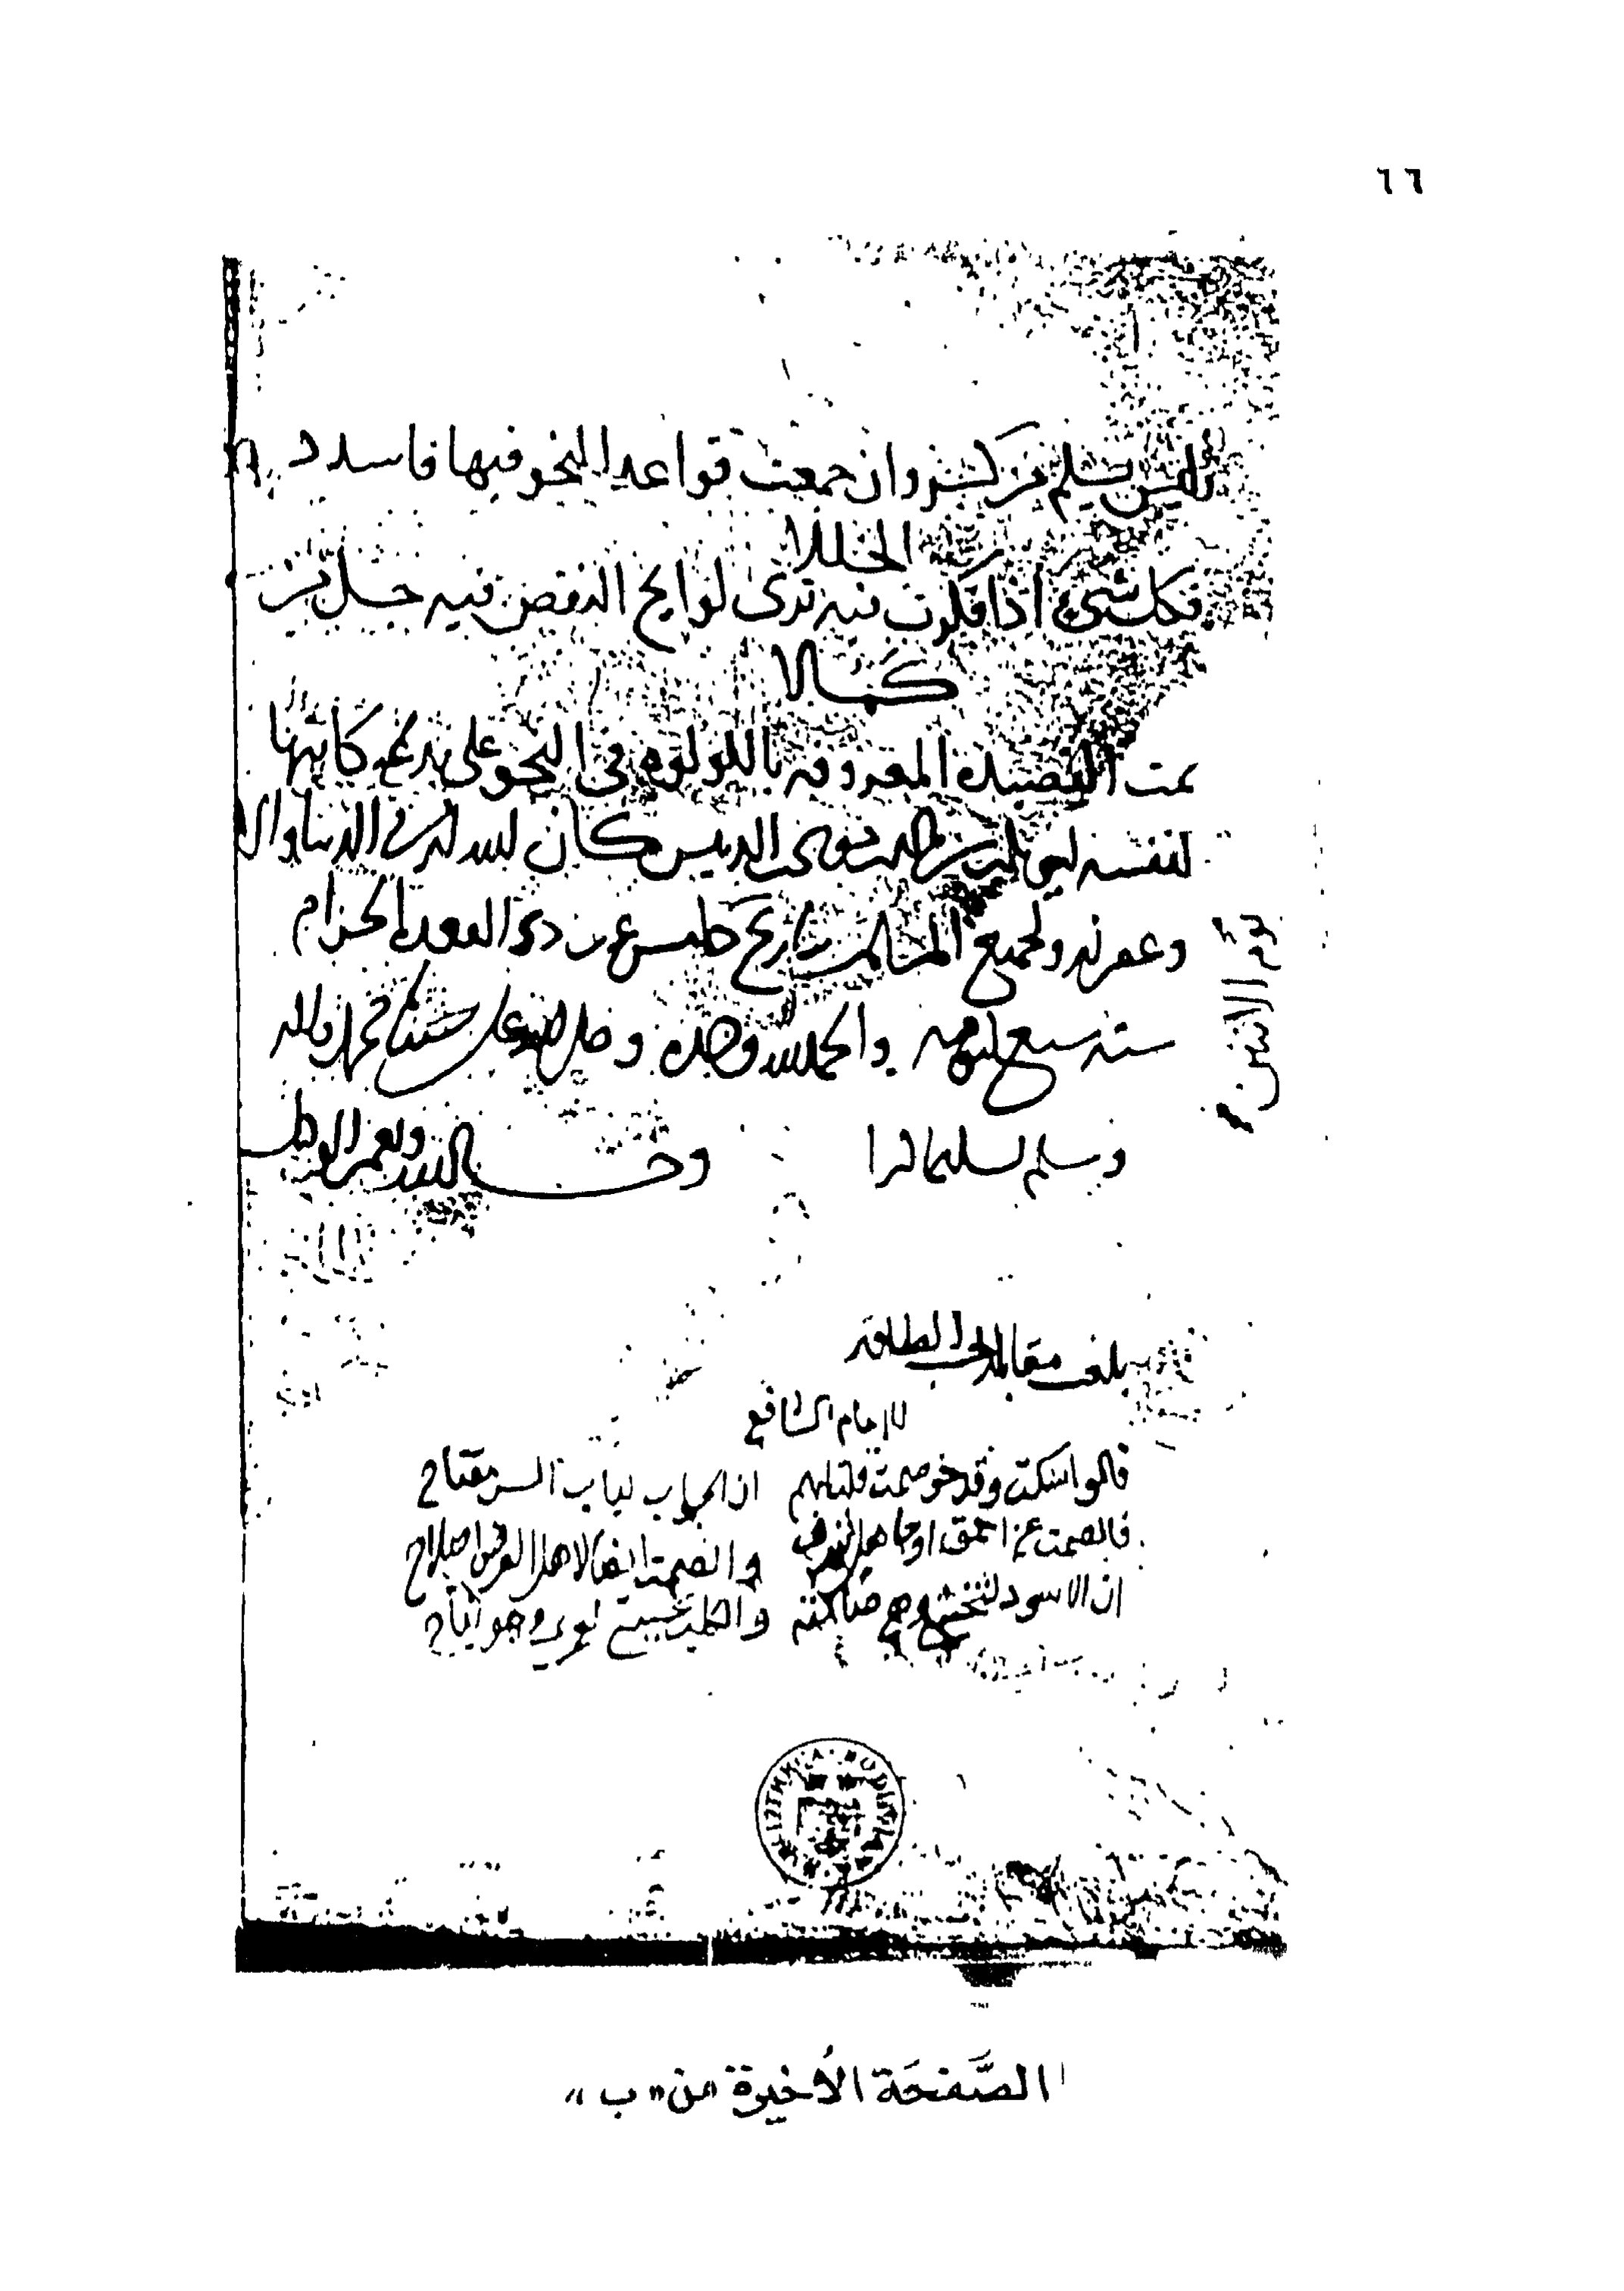 ٦٦
فليس يسلم من كسر وان جمعت قواعد النحو فيها فاسدد
الخللا
فكل شيء اذا فكرت فيه ترى لوايح النقص فيه جل من
كملا
تمت القصيدة المعروفة باللولوه في النحو على يد كاتبها
لنفسه كان الله له في الدنيا والا
وغفر له ولجميع المسلمين بتاريخ ذي القعده الحرام
سنة سبع والحمد لله وحده وصلى الله على سيدنا محمد واله
وسلم تسليما كثيرا وحسبنا الله ونعم الوكيل
يوم الاثنين
بلغت مقابلة حسب الطاقة
للامام الشافعي
قالوا اسكت وقد خوصمت قلت لهم ان الجواب لباب الشر مفتاح
فالصمت عن احمق او جاهل شرف والصمت ايضا لاهل العرض اصلاح
ان الاسود لتخشى وهي صامتة والكلب يخسى لعمري وهو نباح
BODLEIANA
الصَّفحَة الأخيرة من «ب»